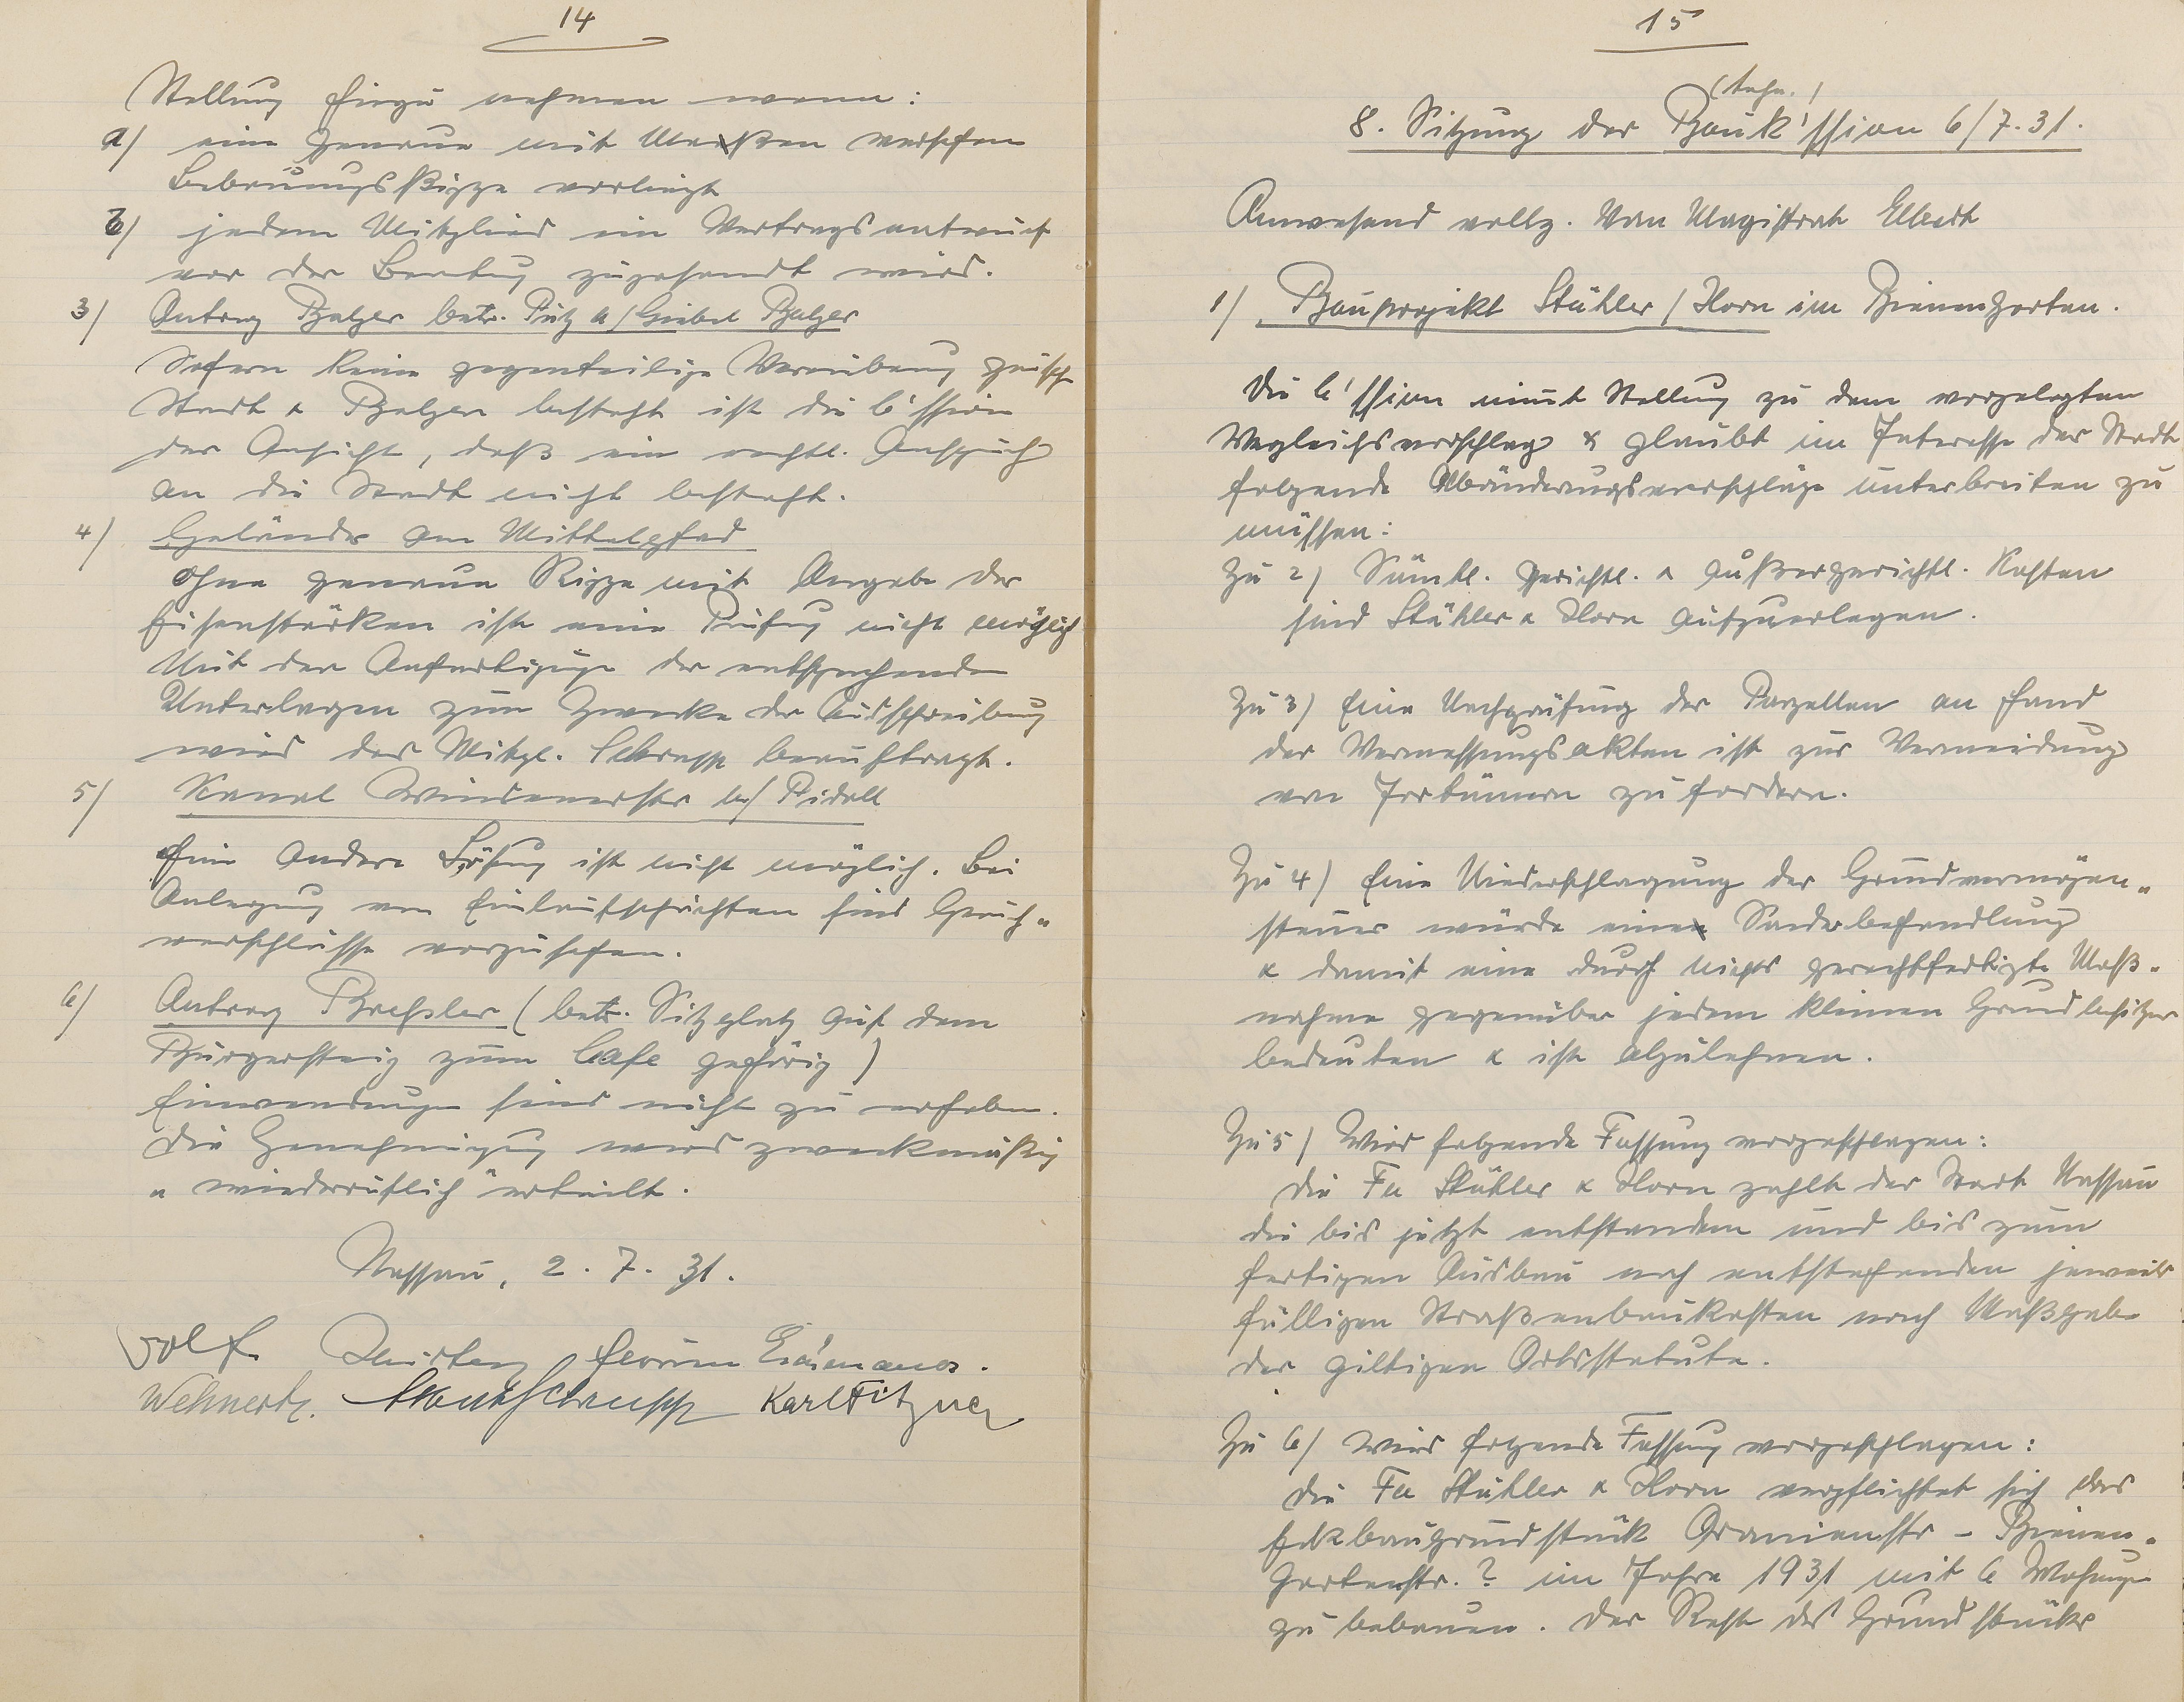 14
Stellung hierzu nehmen wenn:
a) eine genaue mit Massen versehene
Bebauungsskizze vorliegt
b) jedem Mitglied ein Vertragsentwurf
vor der Beratung zugesandt wird.
3) Antrag Balzer betr. Putz a/Giebel Balzer
Sofern keine gegenteilige Vereinbarung zwischen
Stadt & Balzer besteht ist die C'ssion
der Ansicht, daß ein rechtl. Anspruch
an die Stadt nicht besteht.
4) Geländer am Mittelpfad
Ohne genaue Skizze mit Angabe der
Eisenstärken ist eine Prüfung nicht möglich
Mit der Anfertigung der entsprechenden
Unterlagen zum Zwecke der Ausschreibung
wird das Mitgl. Schrupp beauftragt.
5) Kanal Windenerstr b/ Pidoll
Eine andere Lösung ist nicht möglich. Bei
Anlegung von Einlaufschächten sind Geruch-
verschlüsse vorzusehen.
6) Antrag Bressler (betr. Sitzplatz auf dem
Bürgersteig zum Cafe gehörig)
Einwendungen sind nicht zu erheben.
Die Genehmigung wird zweckmäßig
"wiederruflich" erteilt.
Nassau, 2. 7. 31.
Wolf.
Wehnert. Schrupp Karl Fitzner
15
(techn.)
8. Sitzung der Bauk'ssion 6/7.31.
Anwesend vollz. Vom Magistrat Elbert
1) Bauprojekt Stühler / Horn im Bienengarten.
Die C'ssion nimmt Stellung zu dem vorgelegten
Vergleichsvorschlag & glaubt im Interesse der Stadt
folgende Abänderungsvorschläge unterbreiten zu
müssen:
Zu 2) Sämtl. gerichtl. & außergerichtl. Kosten
sind Stühler & Horn aufzuerlegen.
Zu 3) Eine Nachprüfung der Parzellen an Hand
der Vermessungsakten ist zur Vermeidung
von Irrtümern zu fordern.
Zu 4) Eine Niederschlagung der Grundvermögen-
steuer würde eine Sonderbehandlung
& damit eine durch nichts gerechtfertigte Maß-
nahme gegenüber jedem kleinen Grundbesitzer
bedeuten & ist abzulehnen.
Zu 5) Wird folgende Fassung vorgeschlagen:
Die Fa Stühler & Horn zahlt der Stadt Nassau
die bis jetzt entstandenen und bis zum
fertigen Ausbau noch entstehenden jeweils
fälligen Straßenbaukosten nach Maßgabe
der giltigen Ortsstatute.
Zu 6) wird folgende Fassung vorgeschlagen:
Die Fa Stühler & Horn verpflichtet sich das
Eckbaugrundstück Oranienstr - Bienen-
gartenstr. ? im Jahre 1931 mit 6 Wohnungen
zu bebauen. Der Rest des Grundstücks